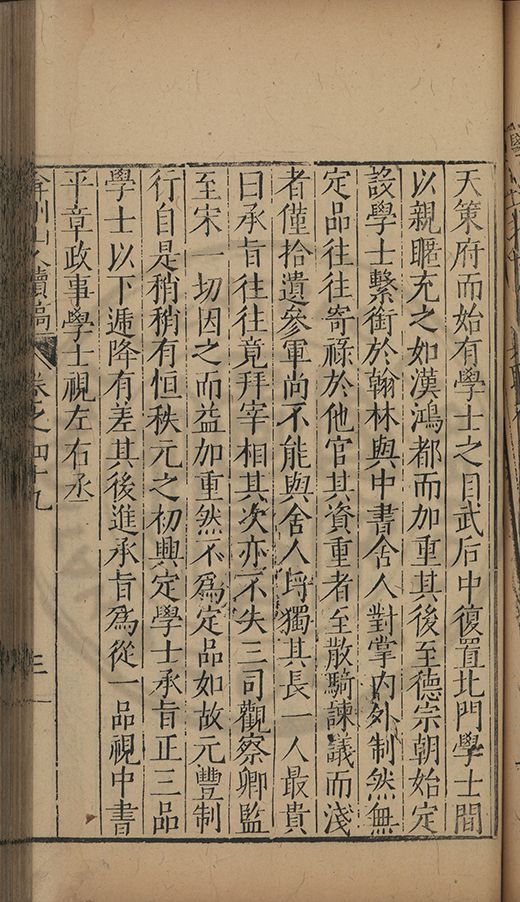 天策府而始有學士之目武后中復置北門學士間
以親暱充之如漢鴻都而加重其後至德宗朝始定
設學士繫銜於翰林與中書舍人對掌內外制然無
定品往往寄祿於他官其資重者至散騎諫議而淺
者僅拾遺參軍尚不能與舍人埒獨其長一人最貴
曰承旨往往竟拜宰相其次亦不失三司觀察卿監
至宋一切因之而益加重然不為定品如故元豐制
行自是稍稍有恒秩元之初興定學士承旨正三品
學士以下遞降有差其後進承旨為從一品視中書
平章政事學士視左右丞
弇州山人續稿 卷之四十九 三